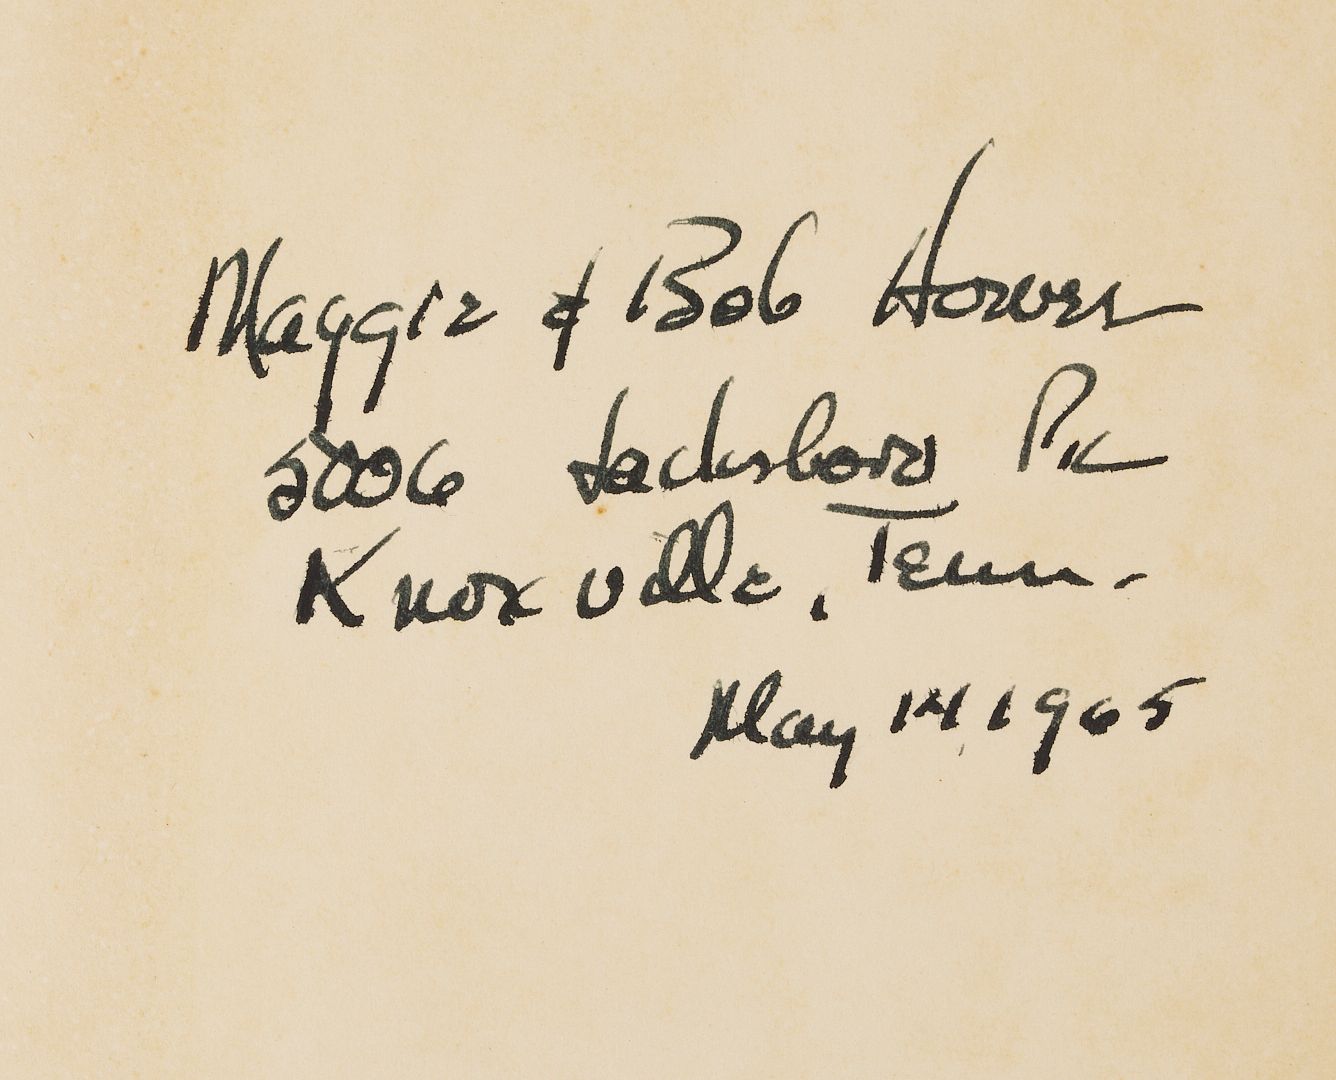 Maggie & Bob Hower
5006 Jacksboro Pk
Knoxville, Tenn.
May 14, 1965